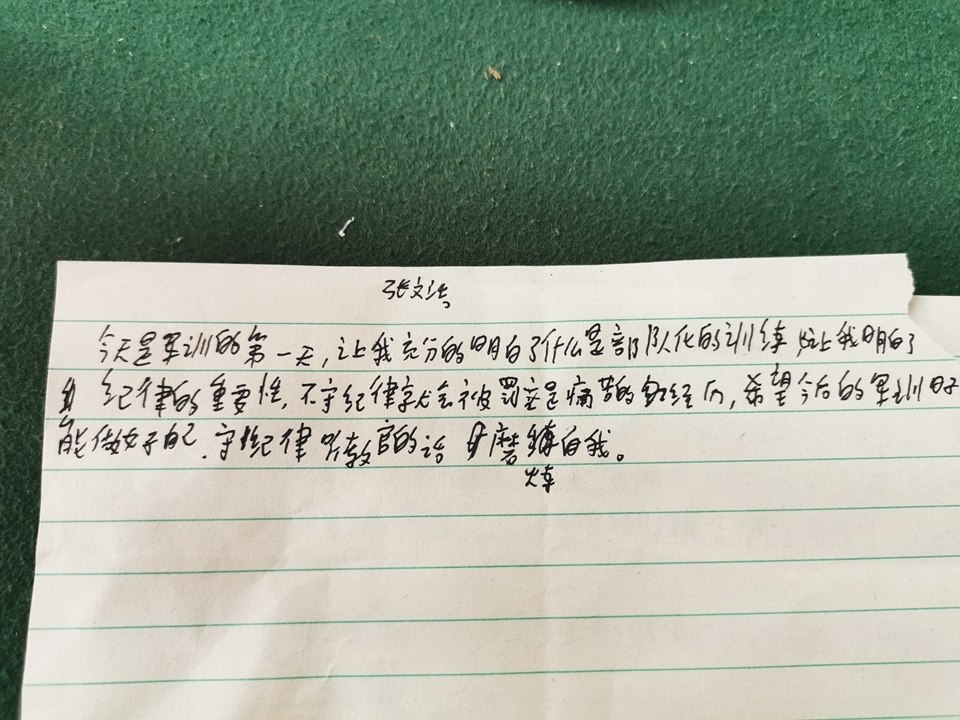 张文浩
今天是军训的第一天，让我充分的明白了什么是部队化的训练 让我明白了
纪律的重要性，不守纪律就会被罚这是痛苦的经历，希望今后的军训日子
能做好自己，守纪律 听教官的话 磨练自我。